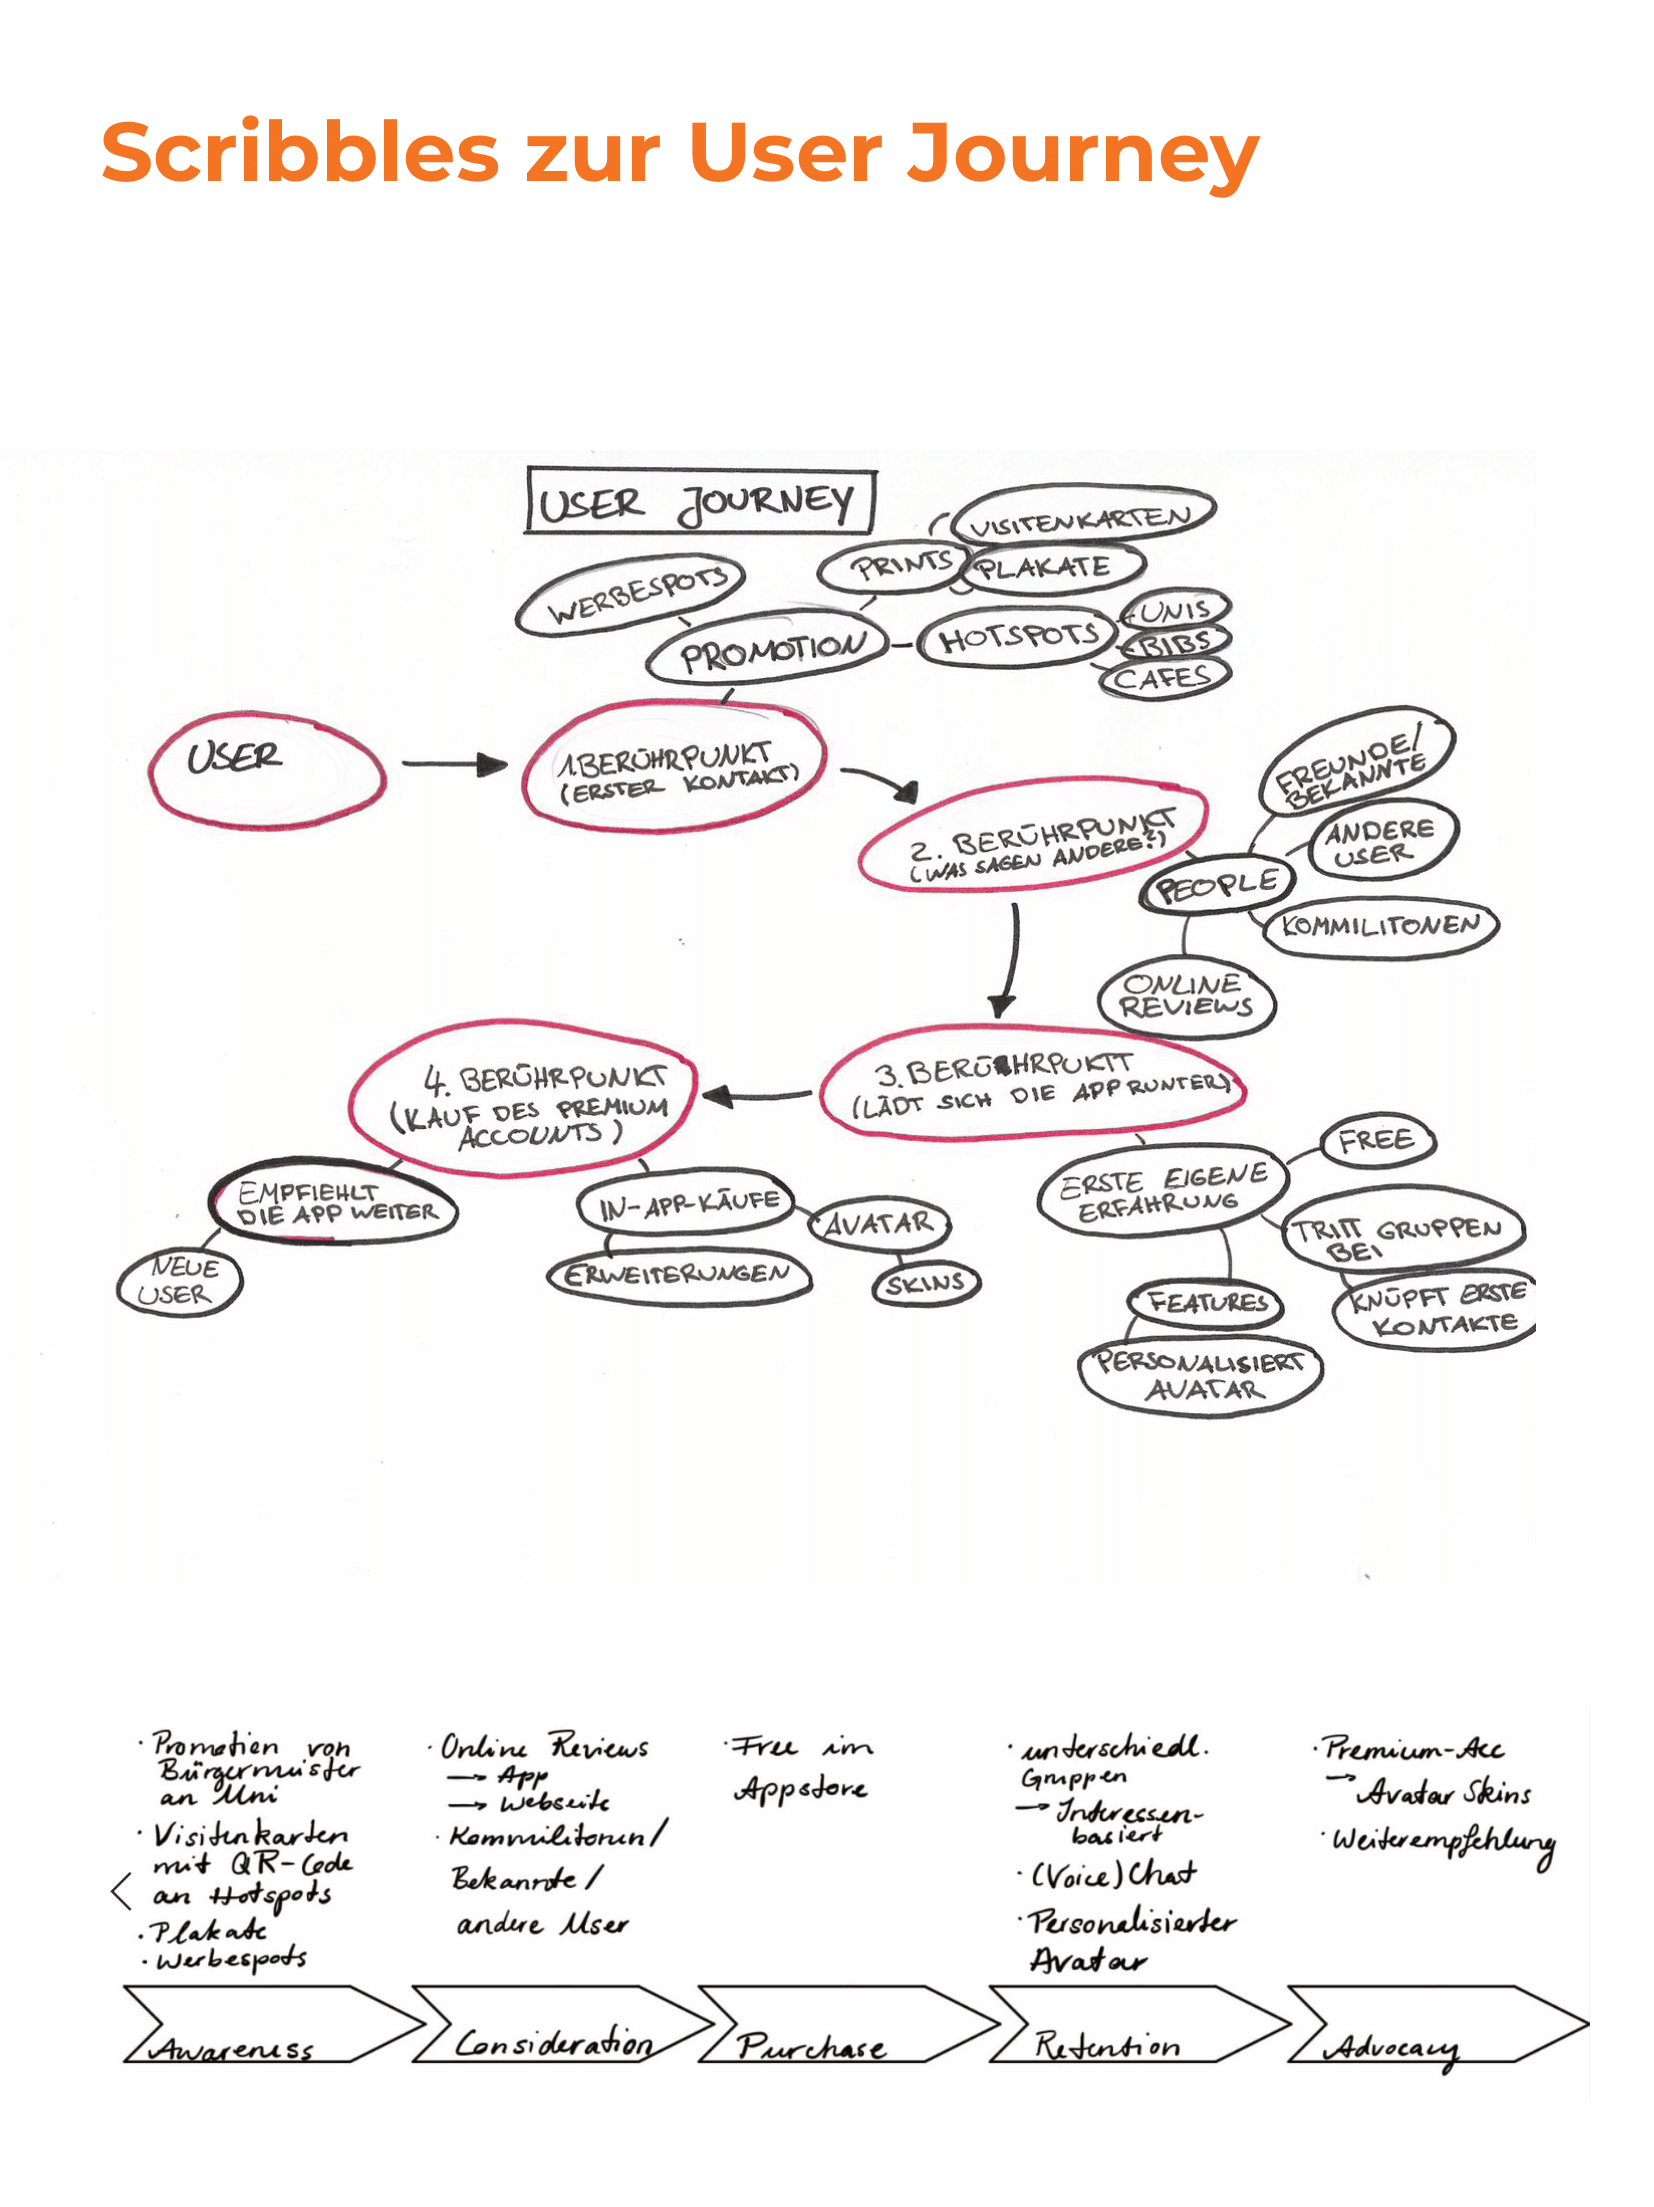 Scribbles zur User Journey
USER JOURNEY
VISITENKARTEN
PRINTS
PLAKATE
WERBESPOTS
PROMOTION
HOTSPOTS
UNIS
BIBS
CAFES
USER
1. BERÜHRPUNKT
(ERSTER KONTAKT)
2. BERÜHRPUNKT
(WAS SAGEN ANDERE?)
FREUNDE/
BEKANNTE
ANDERE
USER
PEOPLE
KOMMILITONEN
ONLINE
REVIEWS
3. BERÜHRPUKTT
(LÄDT SICH DIE APP RUNTER)
4. BERÜHRPUNKT
(KAUF DES PREMIUM
ACCOUNTS)
EMPFIEHLT
DIE APP WEITER
NEUE
USER
IN-APP-KÄUFE
AVATAR
ERWEITERUNGEN
SKINS
ERSTE EIGENE
ERFAHRUNG
FREE
TRITT GRUPPEN
BEI
KNÜPFT ERSTE
KONTAKTE
FEATURES
PERSONALISIERT
AVATAR
· Promotion von
Bürgermeister
an Uni
· Visitenkarten
mit QR-Code
an Hotspots
· Plakate
· Werbespots
Awareness
· Online Reviews
→ App
→ Webseite
· Kommilitonen/
Bekannte/
andere User
Consideration
· Free im
Appstore
Purchase
· unterschiedl.
Gruppen
→ Interessen-
basiert
· (Voice) Chat
· Personalisierter
Avatar
Retention
· Premium-Acc
→ Avatar Skins
· Weiterempfehlung
Advocacy